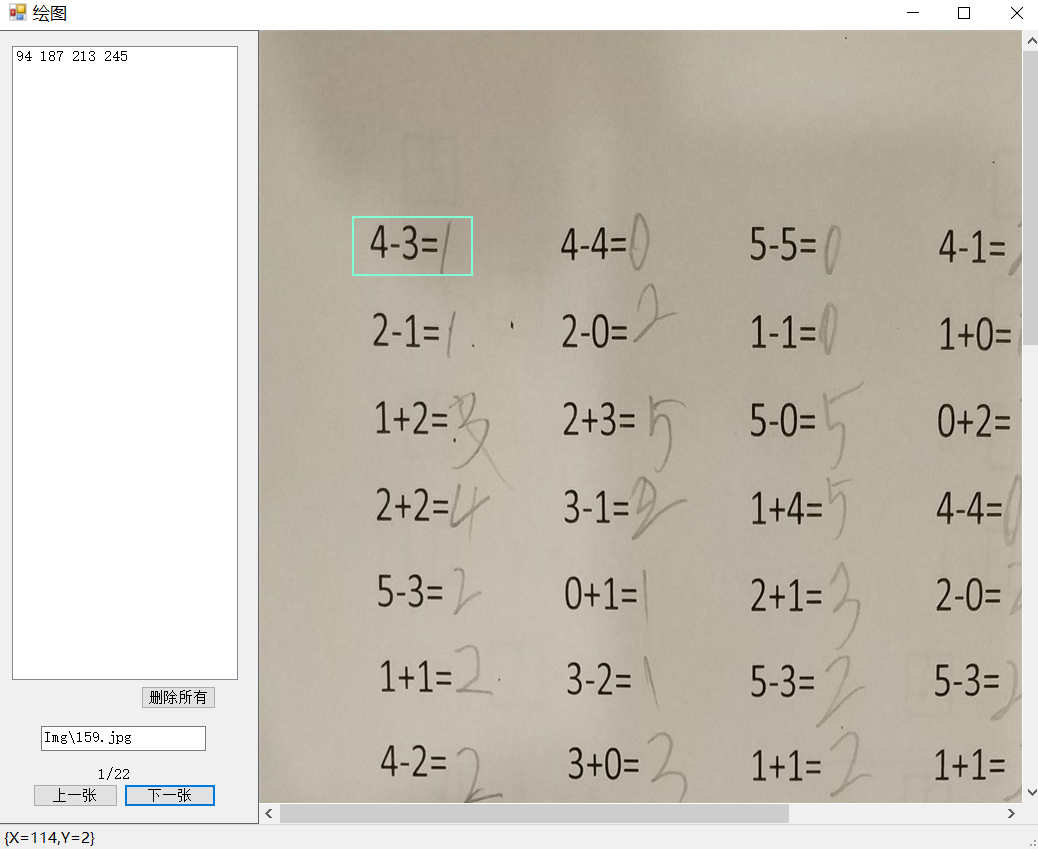 绘图
94 187 213 245
删除所有
Img\159.jpg
1/22
上一张 下一张
{X=114,Y=2}
4-3=1 4-4=0 5-5=0 4-1=
2-1=1 2-0=2 1-1=0 1+0=
1+2=3 2+3=5 5-0=5 0+2=
2+2=4 3-1=2 1+4=5 4-4=0
5-3=2 0+1=1 2+1=3 2-0=2
1+1=2 3-2=1 5-3=2 5-3=2
4-2=2 3+0=3 1+1=2 1+1=